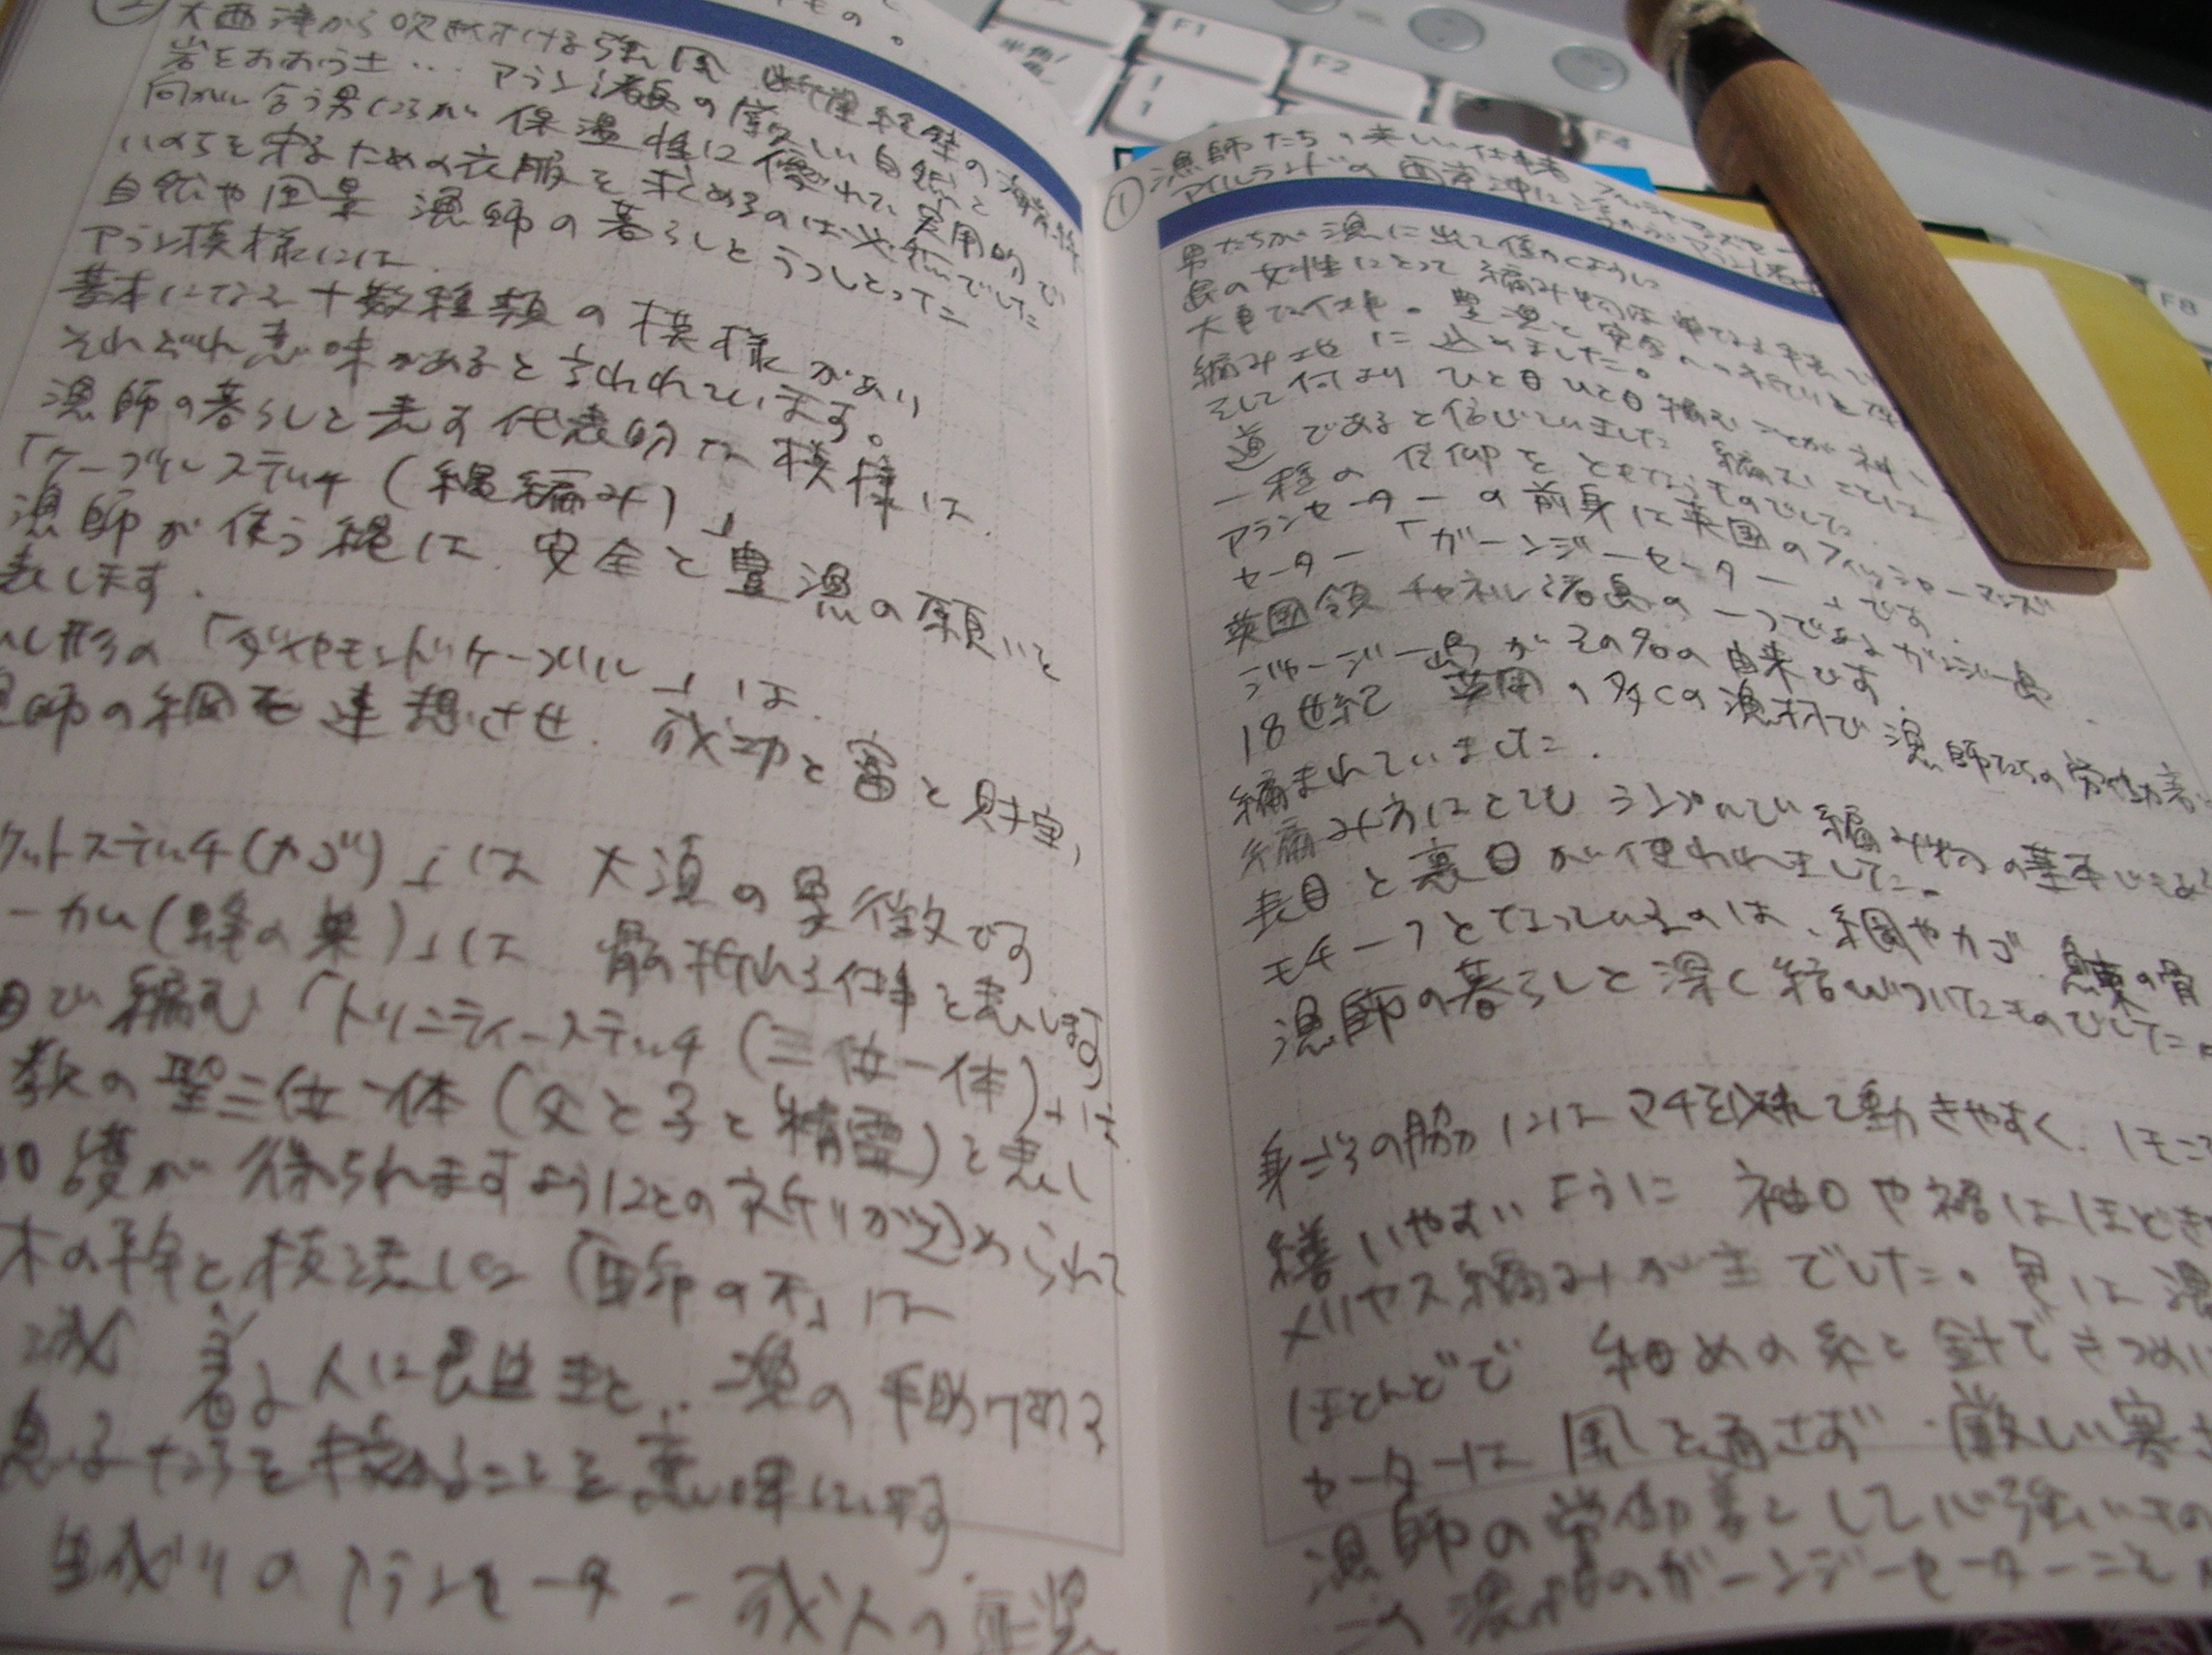 ②
大西洋から吹きつける強い風 断崖絶壁の海岸線
岩をおおう土‥ アラン諸島の厳しい自然と
向かい合う男たちが 保温性に優れて 実用的で
いのちを守るための衣服を求めるのは必然でした
自然や風景 漁師の暮らしとうつしとった
アラン模様には、
基本になる十数種類の模様があり
それぞれ意味があると言われています。
漁師の暮らしと表す代表的な模様は、
「ケーブルステッチ(縄編み)」
漁師が使う縄は、安全と豊漁の願いと
表します.
し形の「ダイヤモンドケーブル」は、
師の網を連想させ、成功と富と財宝、
ケットステッチ(カゴ)」は 大漁の象徴です
ーカム(蜂の巣)」は 骨の折れる仕事と表します
目で編む「トリニティーステッチ(三位一体)」は
教の聖三位一体(父と子と精霊)と表し
護が得られますようにとの祈りが込められて
木の幹と枝を表した「生命の木」は
着る人には長生きと、漁の手助けする
息子たちを授かることを意味します
生成りのアランセーター 成人の正装
①漁師たちの 仕事着
アイルランドの西岸沖に アラン諸島
男たちが漁に出て働くように
島の女性にとって 編み物は単なる手芸
大事な仕事。豊漁と安全への祈りと
編み地に込めました。
そして何より ひと目ひと目編むことが神
道であると信じていました 編むことは
一種の信仰をともなうものでした
アランセーターの前身は英国のフィッシャーマンズ
セーター「ガーンジーセーター」です.
英国領チャネル諸島の一つであるガンジー島
ジャージー島がその名の由来です
18世紀 英国の多くの漁村で漁師たちの労働着
編まれていました.
編み方はとても シンプルで 編み物の基本である
表目と裏目が使われました。
モチーフとなっているのは、網やカゴ 魚の骨
漁師の暮らしと深く結びついたものでした。
身ごろの脇にはマチを入れて動きやすく、ほころ
繕いやすいように 袖口や裾はほどき
メリヤス編みが主でした。色は濃
ほとんどで 細めの糸と針できつめに
セーターは 風を通さず 厳しい寒さ
漁師の労働着として心強いもの
この漁師のガーンジーセーターこそ
F1
F2
F4
F8
半角/
!
1